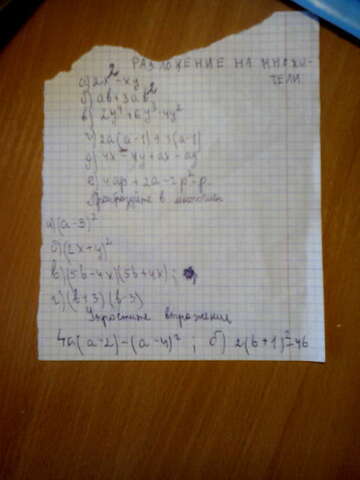 РАЗЛОЖЕНИЕ НА МНОЖИ-
ТЕЛИ.
а) 2x² - xy
б) ab + 3ab²
в) 2y⁴ + 6y³ - 4y²
г) 2a(a-1) + 3(a-1)
д) 4x - 4y + ax - ay
е) 4ap + 2a - 2p² - p
Преобразуйте в многочлен
а) (a-3)²
б) (2x+y)²
в) (5b-4x)(5b+4x);
г) (b+3)(b-3)
Упростите выражения
4a(a-2)-(a-4)²; б) 2(b+1)²-4b